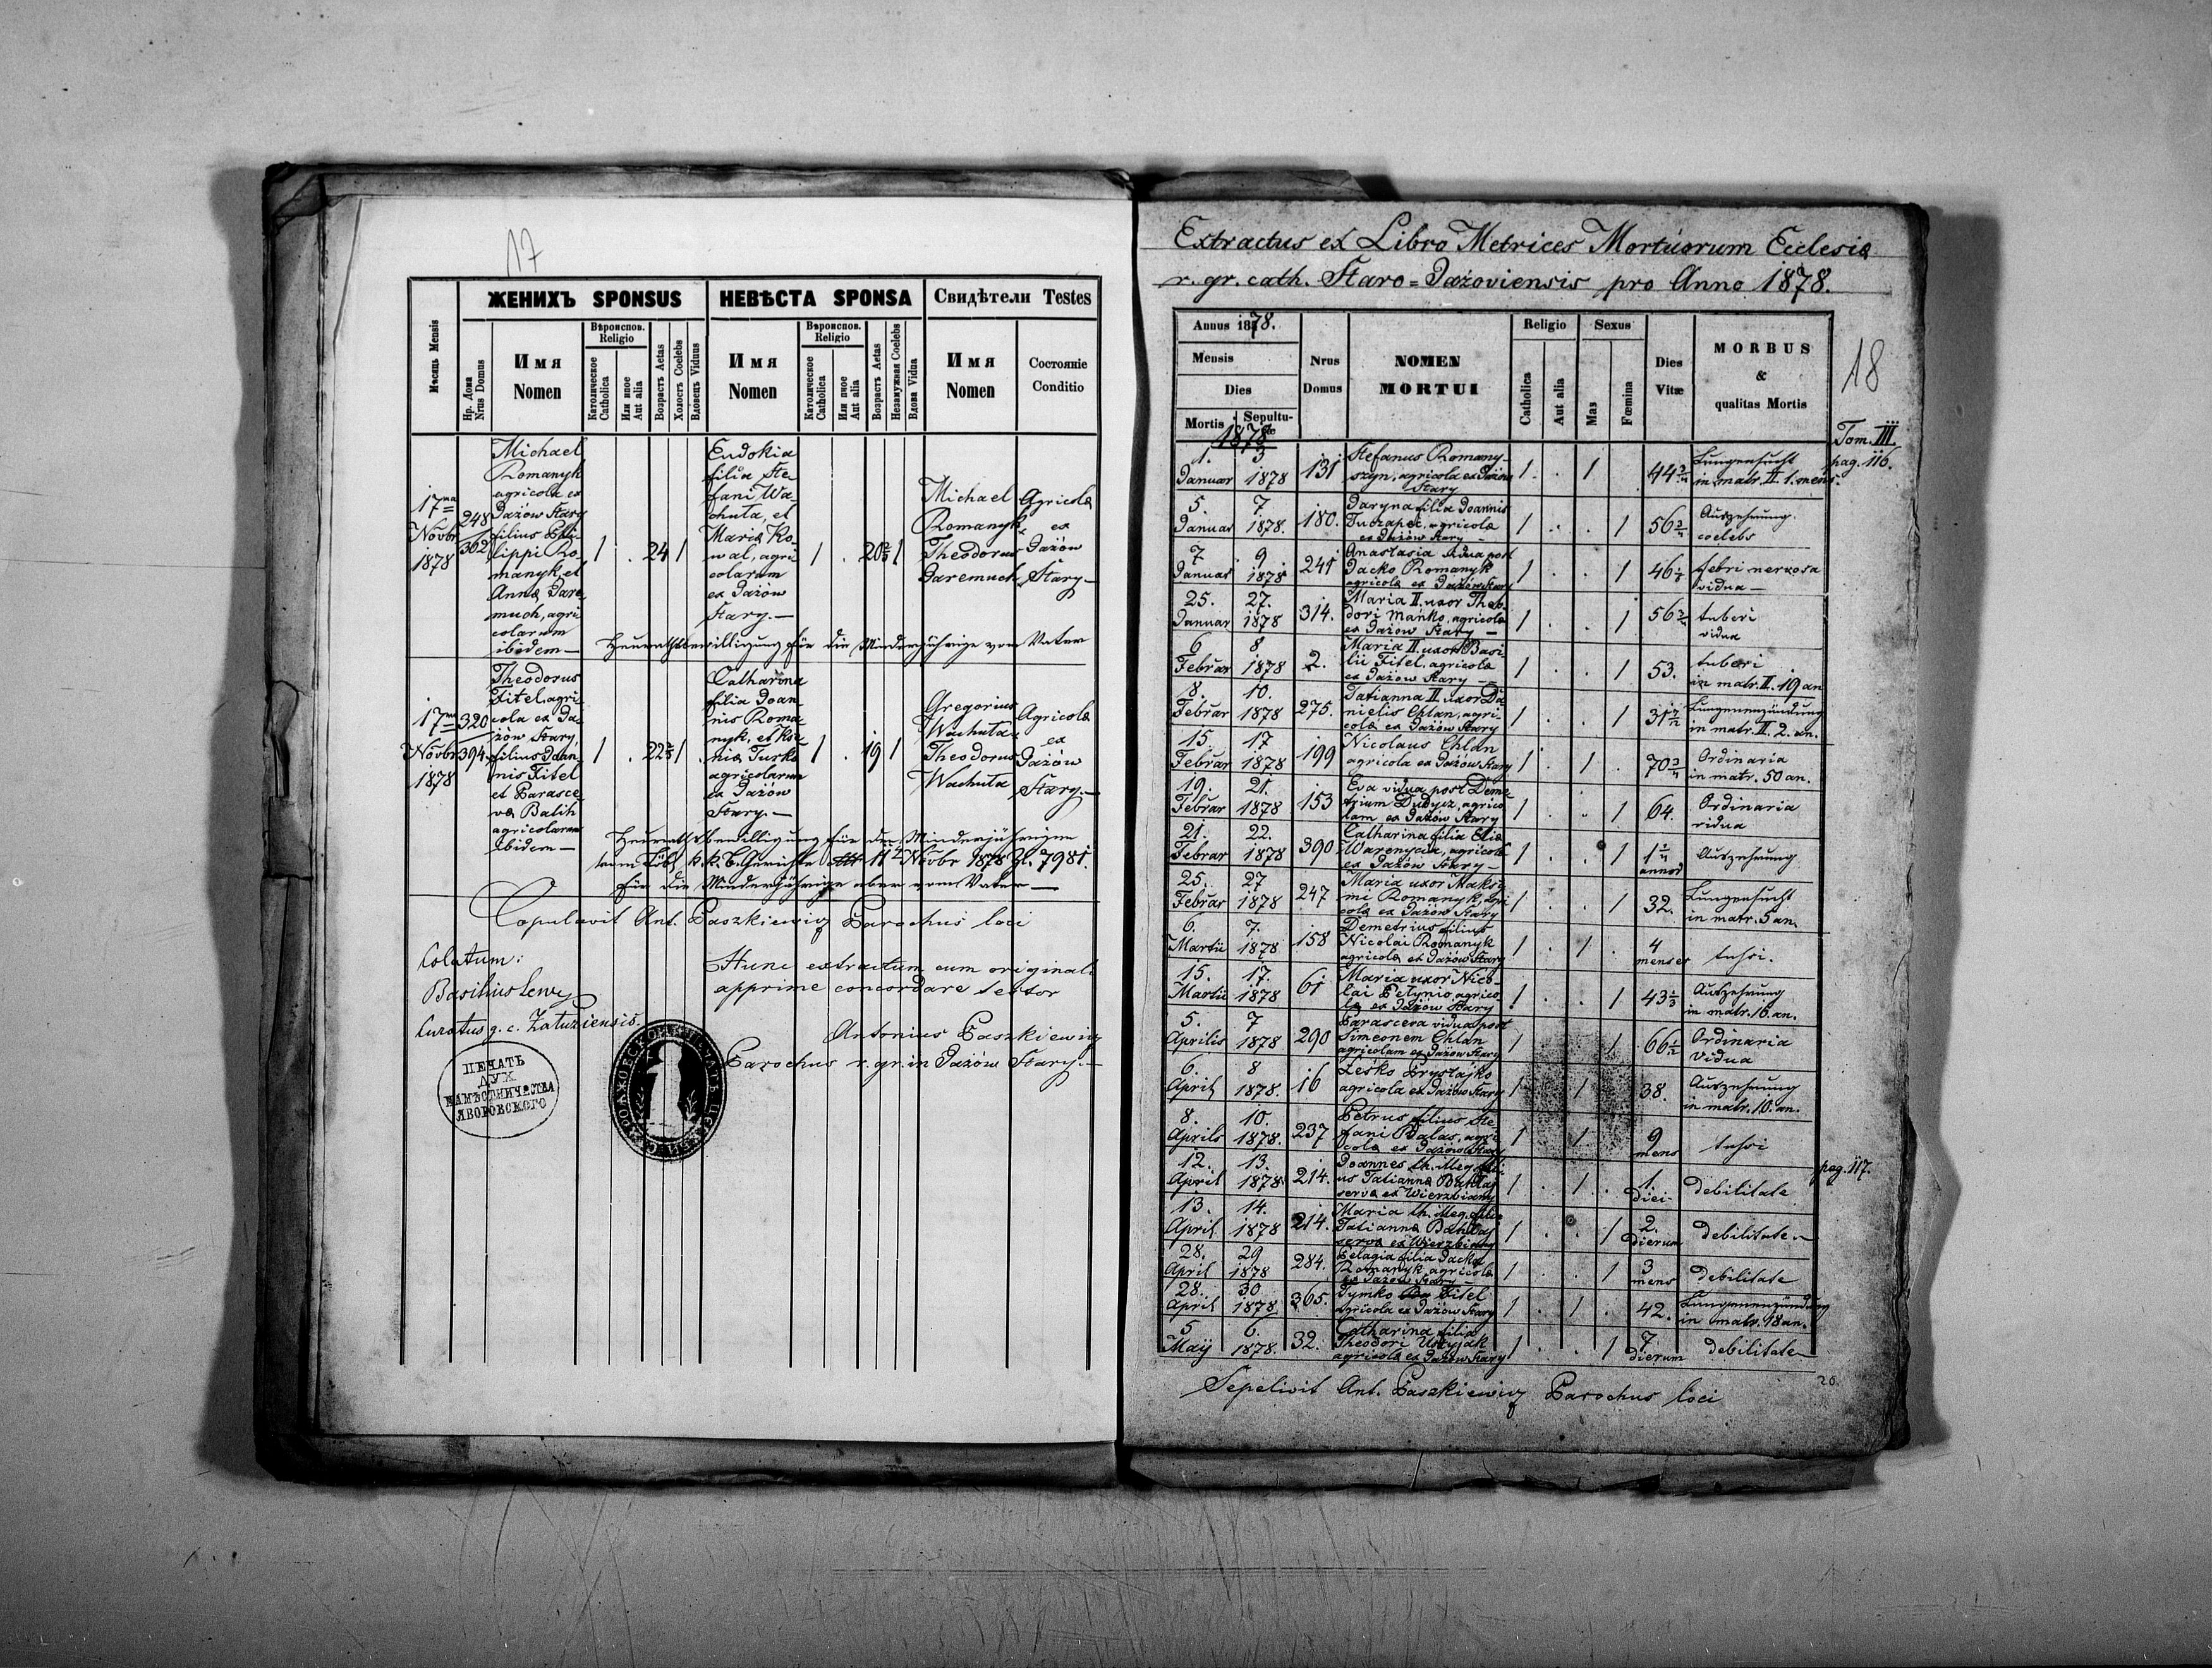 17
Мѣсяцъ Mensis
ЖЕНИХЪ SPONSUS
НЕВѢСТА SPONSA
Свидѣтели Testes
Нр. Дома
Nrus Domus
Имя
Nomen
Вѣроиспов.
Religio
Католическое
Catholica
Или иное
Aut alia
Возрастъ Aetas
Холостъ Coelebs
Вдовецъ Viduus
Имя
Nomen
Вѣроиспов.
Religio
Католическое
Catholica
Или иное
Aut alia
Возрастъ Aetas
Незамужная Coelebs
Вдова Vidua
Имя
Nomen
Состояніе
Conditio
17ma
Novbr
1878
248
302
Michael
Romanyk
agricola ex
Jażów Stary
filius Phi-
lippi Ro-
manyk, et
Anna Jare-
much, agri
colarum
ibidem —
1 . 24 1
Eudokia
filia Ste
fani Wa-
chuta, et
Maria Ko-
wal, agri
colarum
ex Jażów
Stary. —
1 . 20 1
Michael
Romanyk
Theodorus
Jaremuch
Agricola
ex
Jażów
Stary —
Heurathsbewilligung für die Minderjährige vom Vater
17ma
Novbr
1878
320
394
Theodorus
Fitel, agri
cola ex Ja-
żów Stary,
filius Joan-
nis Fitel
et Parasce
va Batih
agricolarum
ibidem —
1 . 22 1 .
Catharina
filia Joan-
nis Roma
nyk, et Kse-
nia Tusko
agricolarum
ex Jażów
Stary. —
1 . 19 1
Gregorius
Wachuta
Theodorus
Wachuta
Agricola
ex
Jażów
Stary. —
Heurathsbewilligung für den Minderjährigen
vom Löbl. k. k. B. Gerichte 11 Novbr 1878 Zl. 7981.
für die Minderjährige aber vom Vater —
Copulavit Ant. Paszkiewicz Parochus loci
Colatum:
Basilius Lewy
Curatus g. c. Załuziensis.
Hunc extractum cum originali
apprime concordare testor
Antonius Paszkiewicz
Parochus r. gr. in Jażów Stary. —
ПЕЧАТЬ
ДУХ.
НАМѢСТНИЧЕСТВА
ЯВОРОВСКОГО
Extractus ex Libro Metrices Mortuorum Ecclesia
r. gr. cath. Staro=Jażoviensis pro Anno 1878.
18
Annus 1878.
Mensis
Dies
Mortis
Sepultu-
Nrus
Domus
NOMEN
MORTUI
Religio
Catholica
Aut alia
Sexus
Mas
Fœmina
Dies
Vitæ
MORBUS
&
qualitas Mortis
1878
Tom. III
pag. 116.
1. Januar
3 1878
131
Stefanus Romany-
szyn, agricola ex Jażów
Stary
1 . 1
44
Lungensucht
in matr. II. 1. mens.
5. Januar
7 1878.
180.
Daryna filia Joannis
Tuczapec, agricola
ex Jażów Stary —
1 . . 1
56
Auszehrung
coelebs
7 Januar
9 1878
241
Anastasia vidua post
Jacko Romanyk
agricola ex Jażów Stary
1 . . 1
46
febri nervosa
vidua —
25. Januar
27. 1878
314.
Maria II. uxor Theo-
dori Mańko, agricola
ex Jażów Stary —
1 . . 1
56
tuberi
vidua
6 Februar
8 1878
2.
Maria II. uxor Basi-
lii Fitel, agricola
ex Jażów Stary —
1 . . 1
53.
tuberi
in matr. II. 19 an
8. Februar
10. 1878
275.
Tatianna II. uxor Da
nielis Chlan, agri-
cola ex Jażów Stary
1 . . 1
31
Lungenenzündung
in matr. II. 2. an.
15 Februar
17 1878
199
Nicolaus Chlan
agricola ex Jażów Stary
1 . 1 .
70
Ordinaria
in matr. 50 an.
19. Februar
21. 1878
153
Eva vidua post Deme
trium Dudycz, agrico
lam ex Jażów Stary
1 . . 1
64.
Ordinaria
vidua
21. Februar
22. 1878
390
Catharina filia Elia
Warenycia, agricola
ex Jażów Stary —
1 . . 1
1
annor
Auszehrung
25. Februar
27 1878
247
Maria uxor Maksy
mi Romanyk, agri
cola ex Jażów Stary
1 . . 1
32.
Lungensucht
in matr. 5 an.
6. Martii
7. 1878
158
Demetrius filius
Nicolai Romanyk
agricola ex Jażów Stary
1 . 1 .
4
menses
tussi.
15. Martii
17. 1878
61
Maria uxor Nico-
lai Petynio, agrico
la ex Jażów Stary
1 . . 1
43
Auszehrung
in matr. 16. an.
5. Aprilis
7 1878
290
Parasceva vidua post
Simeonem Chlan
agricolam ex Jażów Stary
1 . . 1
66
Ordinaria
vidua
6. April
8 1878.
16
Leśko Prystajko
agricola ex Jażów Stary
1 . 1
38.
Auszehrung
in matr. 10. an.
8. Aprils
10. 1878.
237
Petrus filius Ste
fani Balas, agri
cola ex Jażów Stary
1 . 1
9
mens
tussi
pag. 117.
12. April
13. 1878
214.
Joannes th. illeg. fili
us Tatianna Bahlaj
serva ex Wierzbiany
1 . 1 .
1.
diei
debilitate
13. April.
14. 1878
214.
Maria th. illeg. filia
Tatianna Bahlaj
serva ex Wierzbiany
1 . . 1
2.
dierum
debilitate —
28. April
29 1878
284.
Pelagia filia Jacko
Romanyk, agricola
ex Jażów Stary —
1 . . 1
3
mens
debilitate
28. April
30 1878
365.
Tymko Fitel
agricola ex Jażów Stary
1 . 1 .
42.
Lungenenzündung
in matr. 18 an.
5 Maij
6. 1878.
32.
Catharina filia
Theodori Ustyjak
agricola ex Jażów Stary
1 . . 1
7
dierum
debilitate —
20.
Sepelivit Ant. Paszkiewicz Parochus loci